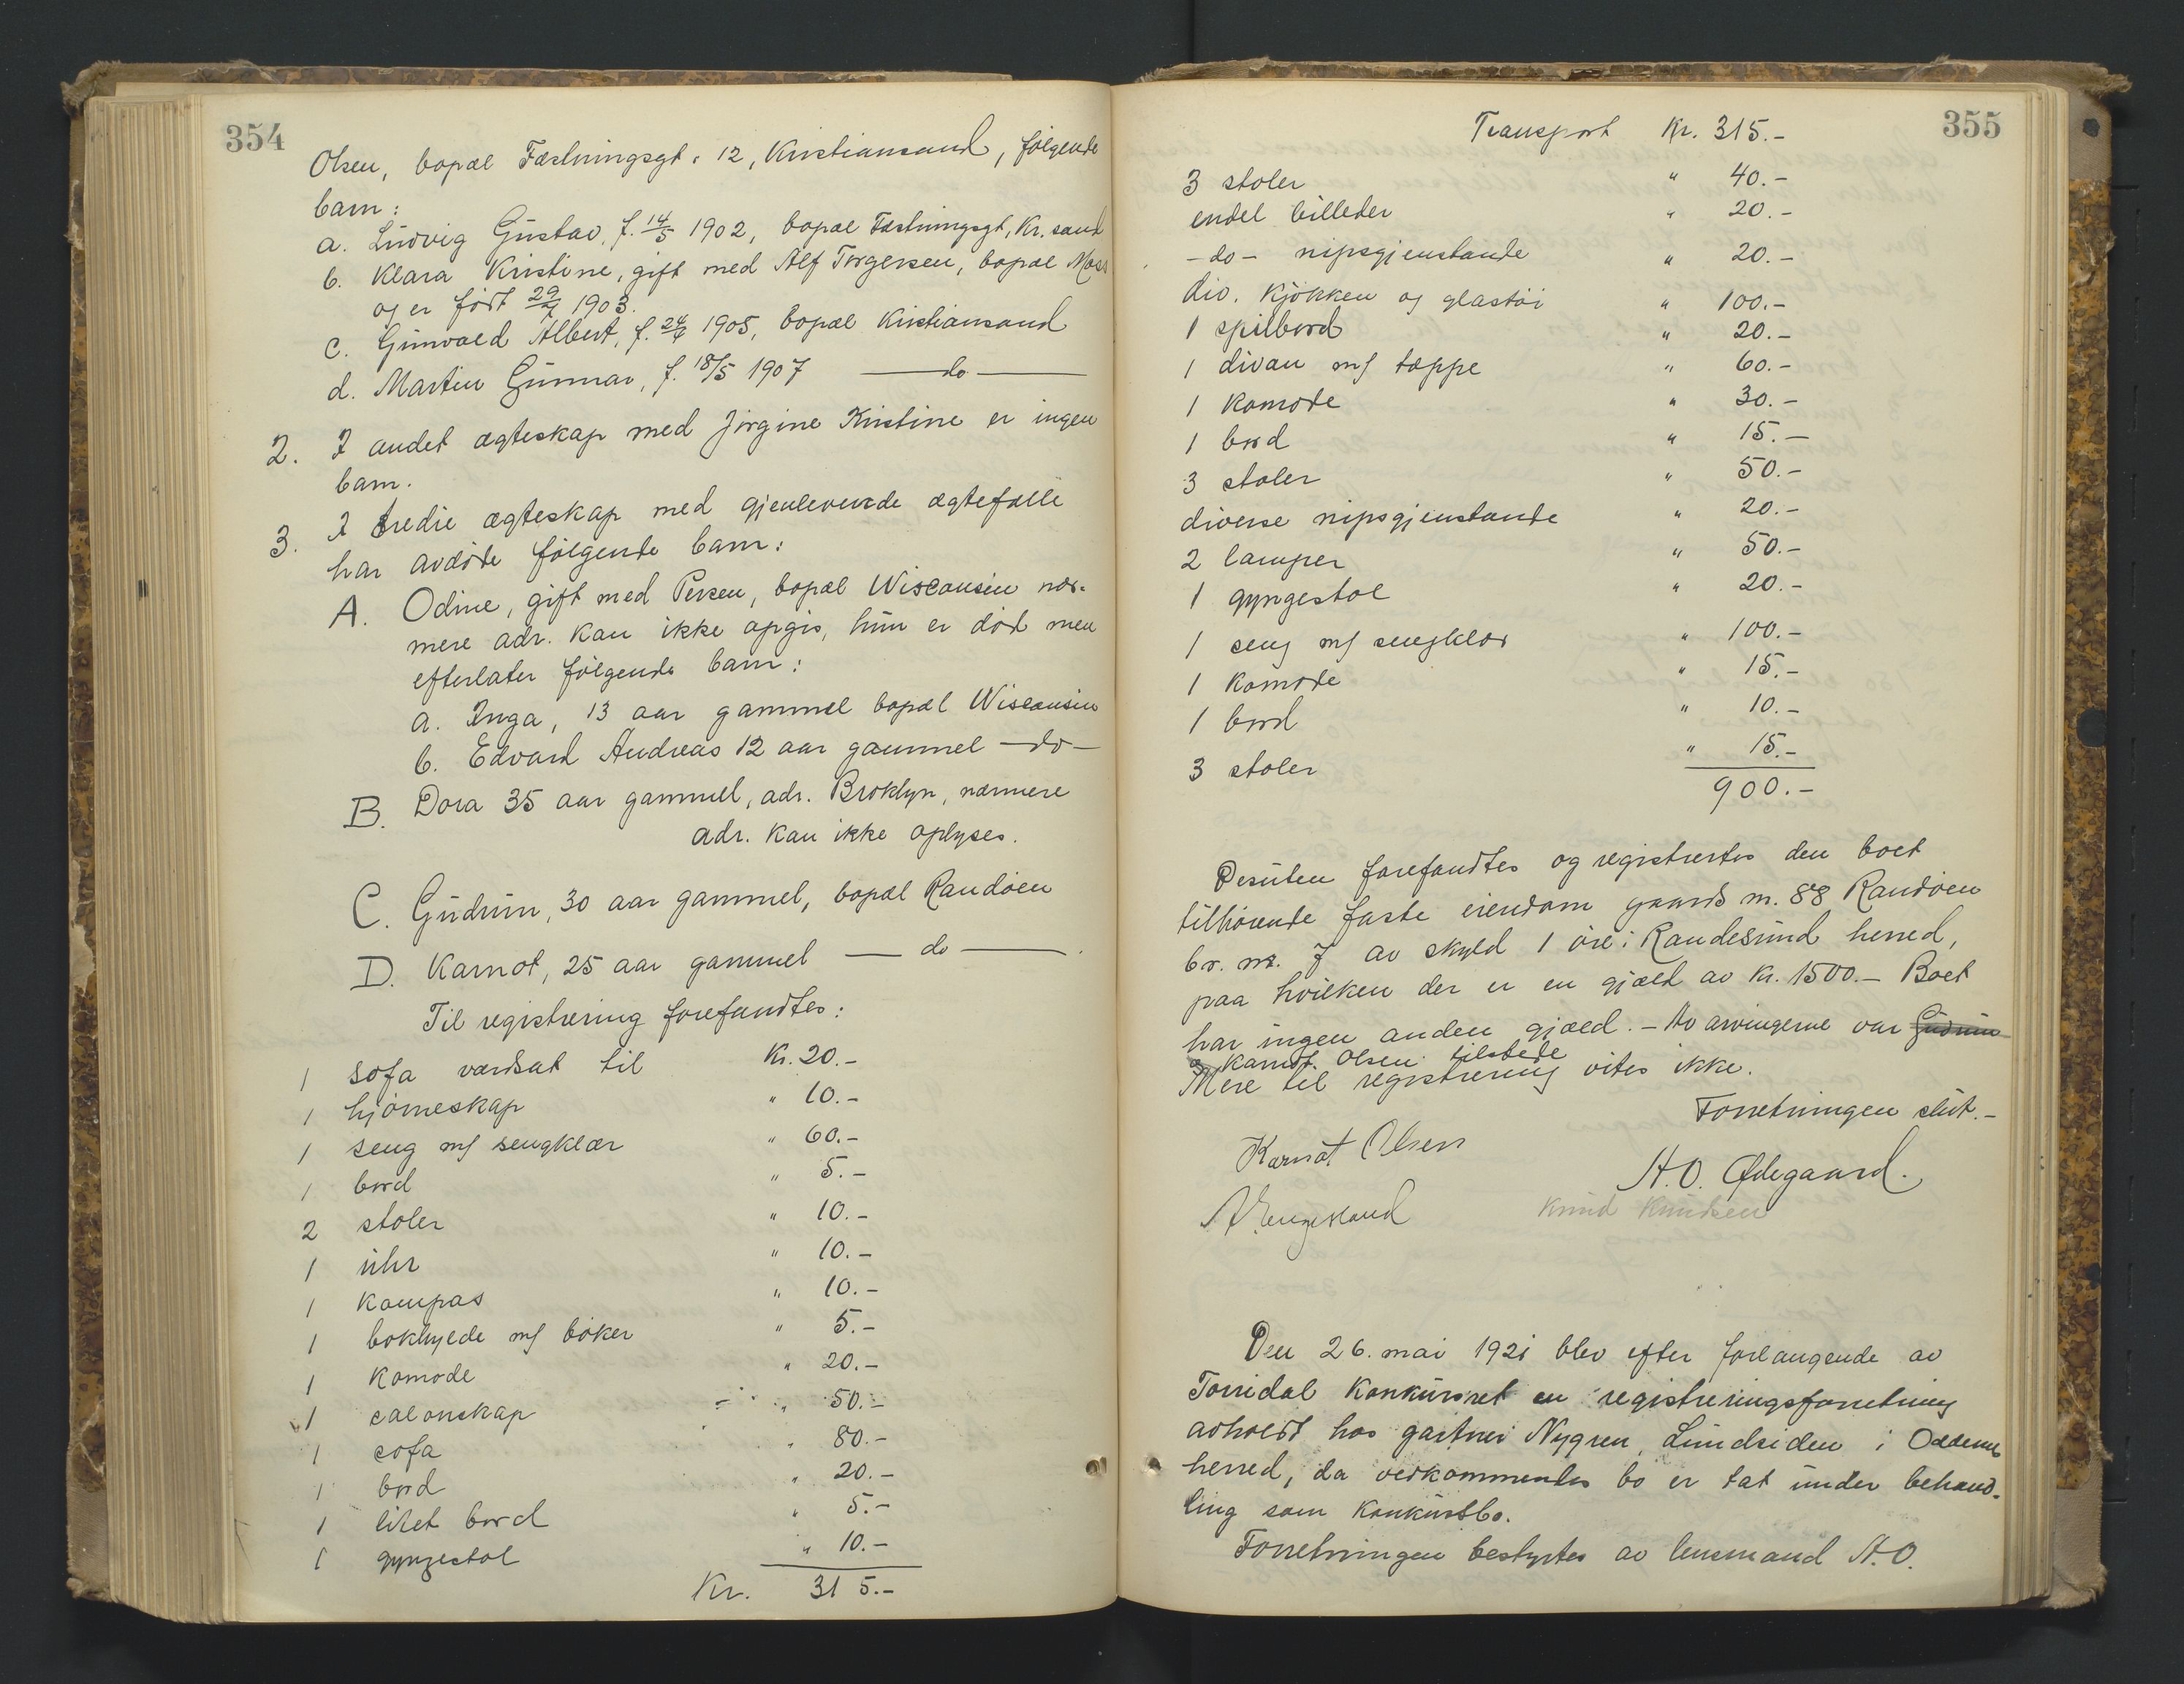 354
Olsen, bopæl Fæstningsgt. 12, Kristiansand, følgende
barn:
a. Ludvig Gustav, f. 14/5 1902, bopæl Fæstningsgt, Kr.sand
b. Klara Kristine, gift med Alf Torgersen, bopæl Moss
og er født 29/7 1903.
c. Gunvald Albert, f. 24/6 1905, bopæl Kristiansand
d. Martin Gunnar, f. 18/5 1907 —do—
2. I andet ægteskap med Jørgine Kristine er ingen
barn.
3. I tredie ægteskap med gjenlevende ægtefælle
har avdøde følgende barn:
A. Odine, gift med Persen, bopæl Wisconsin nær-
mere adr. kan ikke opgis, hun er død men
efterlater følgende barn:
a. Inga, 13 aar gammel bopæl Wisconsin
b. Edvard Andreas 12 aar gammel —do—
B. Dora 35 aar gammel, adr. Broklyn, nærmere
adr. kan ikke oplyses.
C. Gudrun, 30 aar gammel, bopæl Randøen
D. Karnot, 25 aar gammel — do —.
Til registrering forefandtes:
1 sofa værdsat til Kr. 20.-
1 hjørneskap " 10.-
1 seng m/ sengklær " 60.-
1 bord " 5.-
2 stoler " 10.-
1 uhr " 10.-
1 kompas " 10.-
1 bokhylde m/ bøker " 5.-
1 komode " 20.-
1 salonskap " 50.-
1 sofa " 80.-
1 bord " 20.-
1 litet bord " 5.-
1 gyngestol " 10.-
Kr. 315.-
355
Transport Kr. 315.-
3 stoler " 40.-
endel billeder " 20.-
-do- nipsgjenstande " 20.-
div. kjøkken og glastøi " 100.-
1 spilbord " 20.-
1 divan m/ tæppe " 60.-
1 komode " 30.-
1 bord " 15.-
3 stoler " 50.-
diverse nipsgjenstande " 20.-
2 lamper " 50.-
1 gyngestol " 20.-
1 seng m/ sengklær " 100.-
1 komode " 15.-
1 bord " 10.-
3 stoler " 15.-
900.-
Desuten forefandtes og registrertes den boet
tilhørende faste eiendom gaards nr. 88 Randøen
br. nr. 7 av skyld 1 øre i Randesund herred,
paa hvilken der er en gjæld av Kr. 1500.- Boet
har ingen anden gjæld. - Av arvingerne var Gudrun
og Karnot Olsen tilstede
Mere til registrering vites ikke.
Forretningen slut.-
Karnot Olsen
H.O. Ødegaard.
Knud Knudsen
Den 26. mai 1921 blev efter forlangende av
Torridal konkursret en registreringsforretning
avholdt hos gartner Nygren, Lundsiden i Oddernes
herred, da vedkommendes bo er tat under behand-
ling som konkursbo.
Forretningen bestyrtes av lensmand H.O.